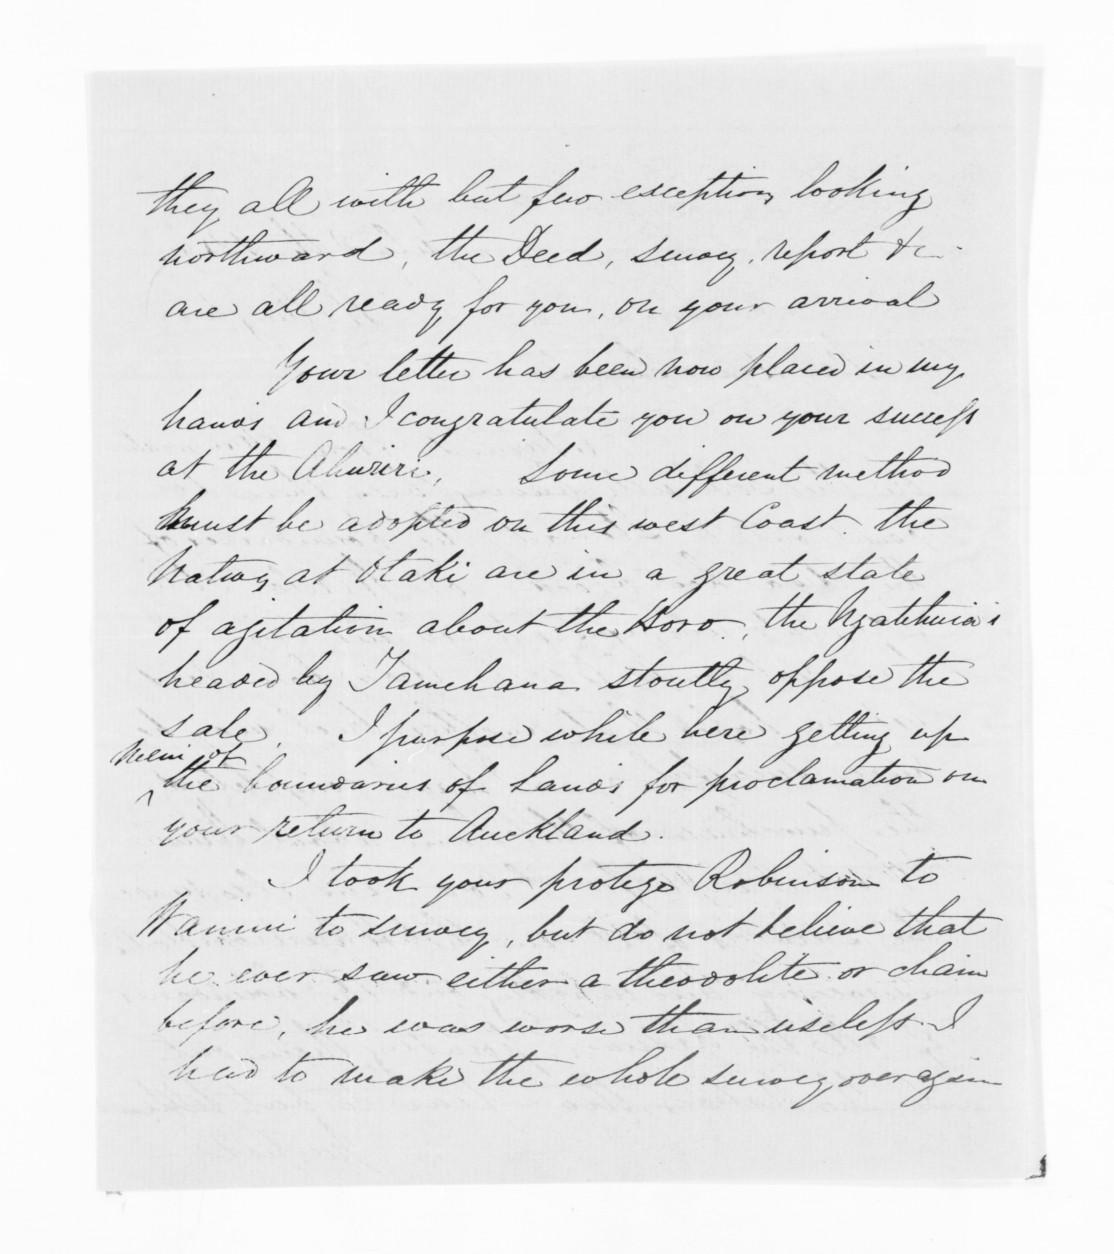 they all with but few exceptions looking
northward, the Deed, survey, report &c
are all ready for you, on your arrival
Your letter has been now placed in my
hands and I congratulate you on your success
at the Ahuriri, Some different method
must be adopted on this west Coast. the
Natives at Otaki are in a great state
of agitation about the Horo, the Ngatihuia's
headed by Tamehana stoutly oppose the
sale. I purpose while here getting up
Mem of
the boundaries of Lands for proclamation on
your return to Auckland.
I took your protege Robinson to
Wainui to survey, but do not believe that
he ever saw either a theodolite or chain
before, he was worse than useless I
had to make the whole survey over again